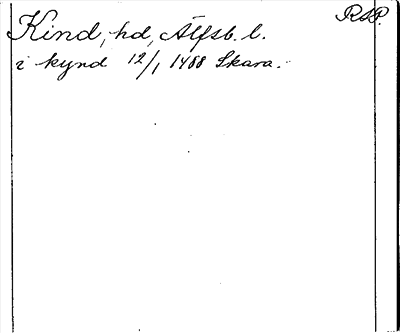 RAP.
Kind, hd, Älfsb. l.
i kynd 12/1 1488 Skara.